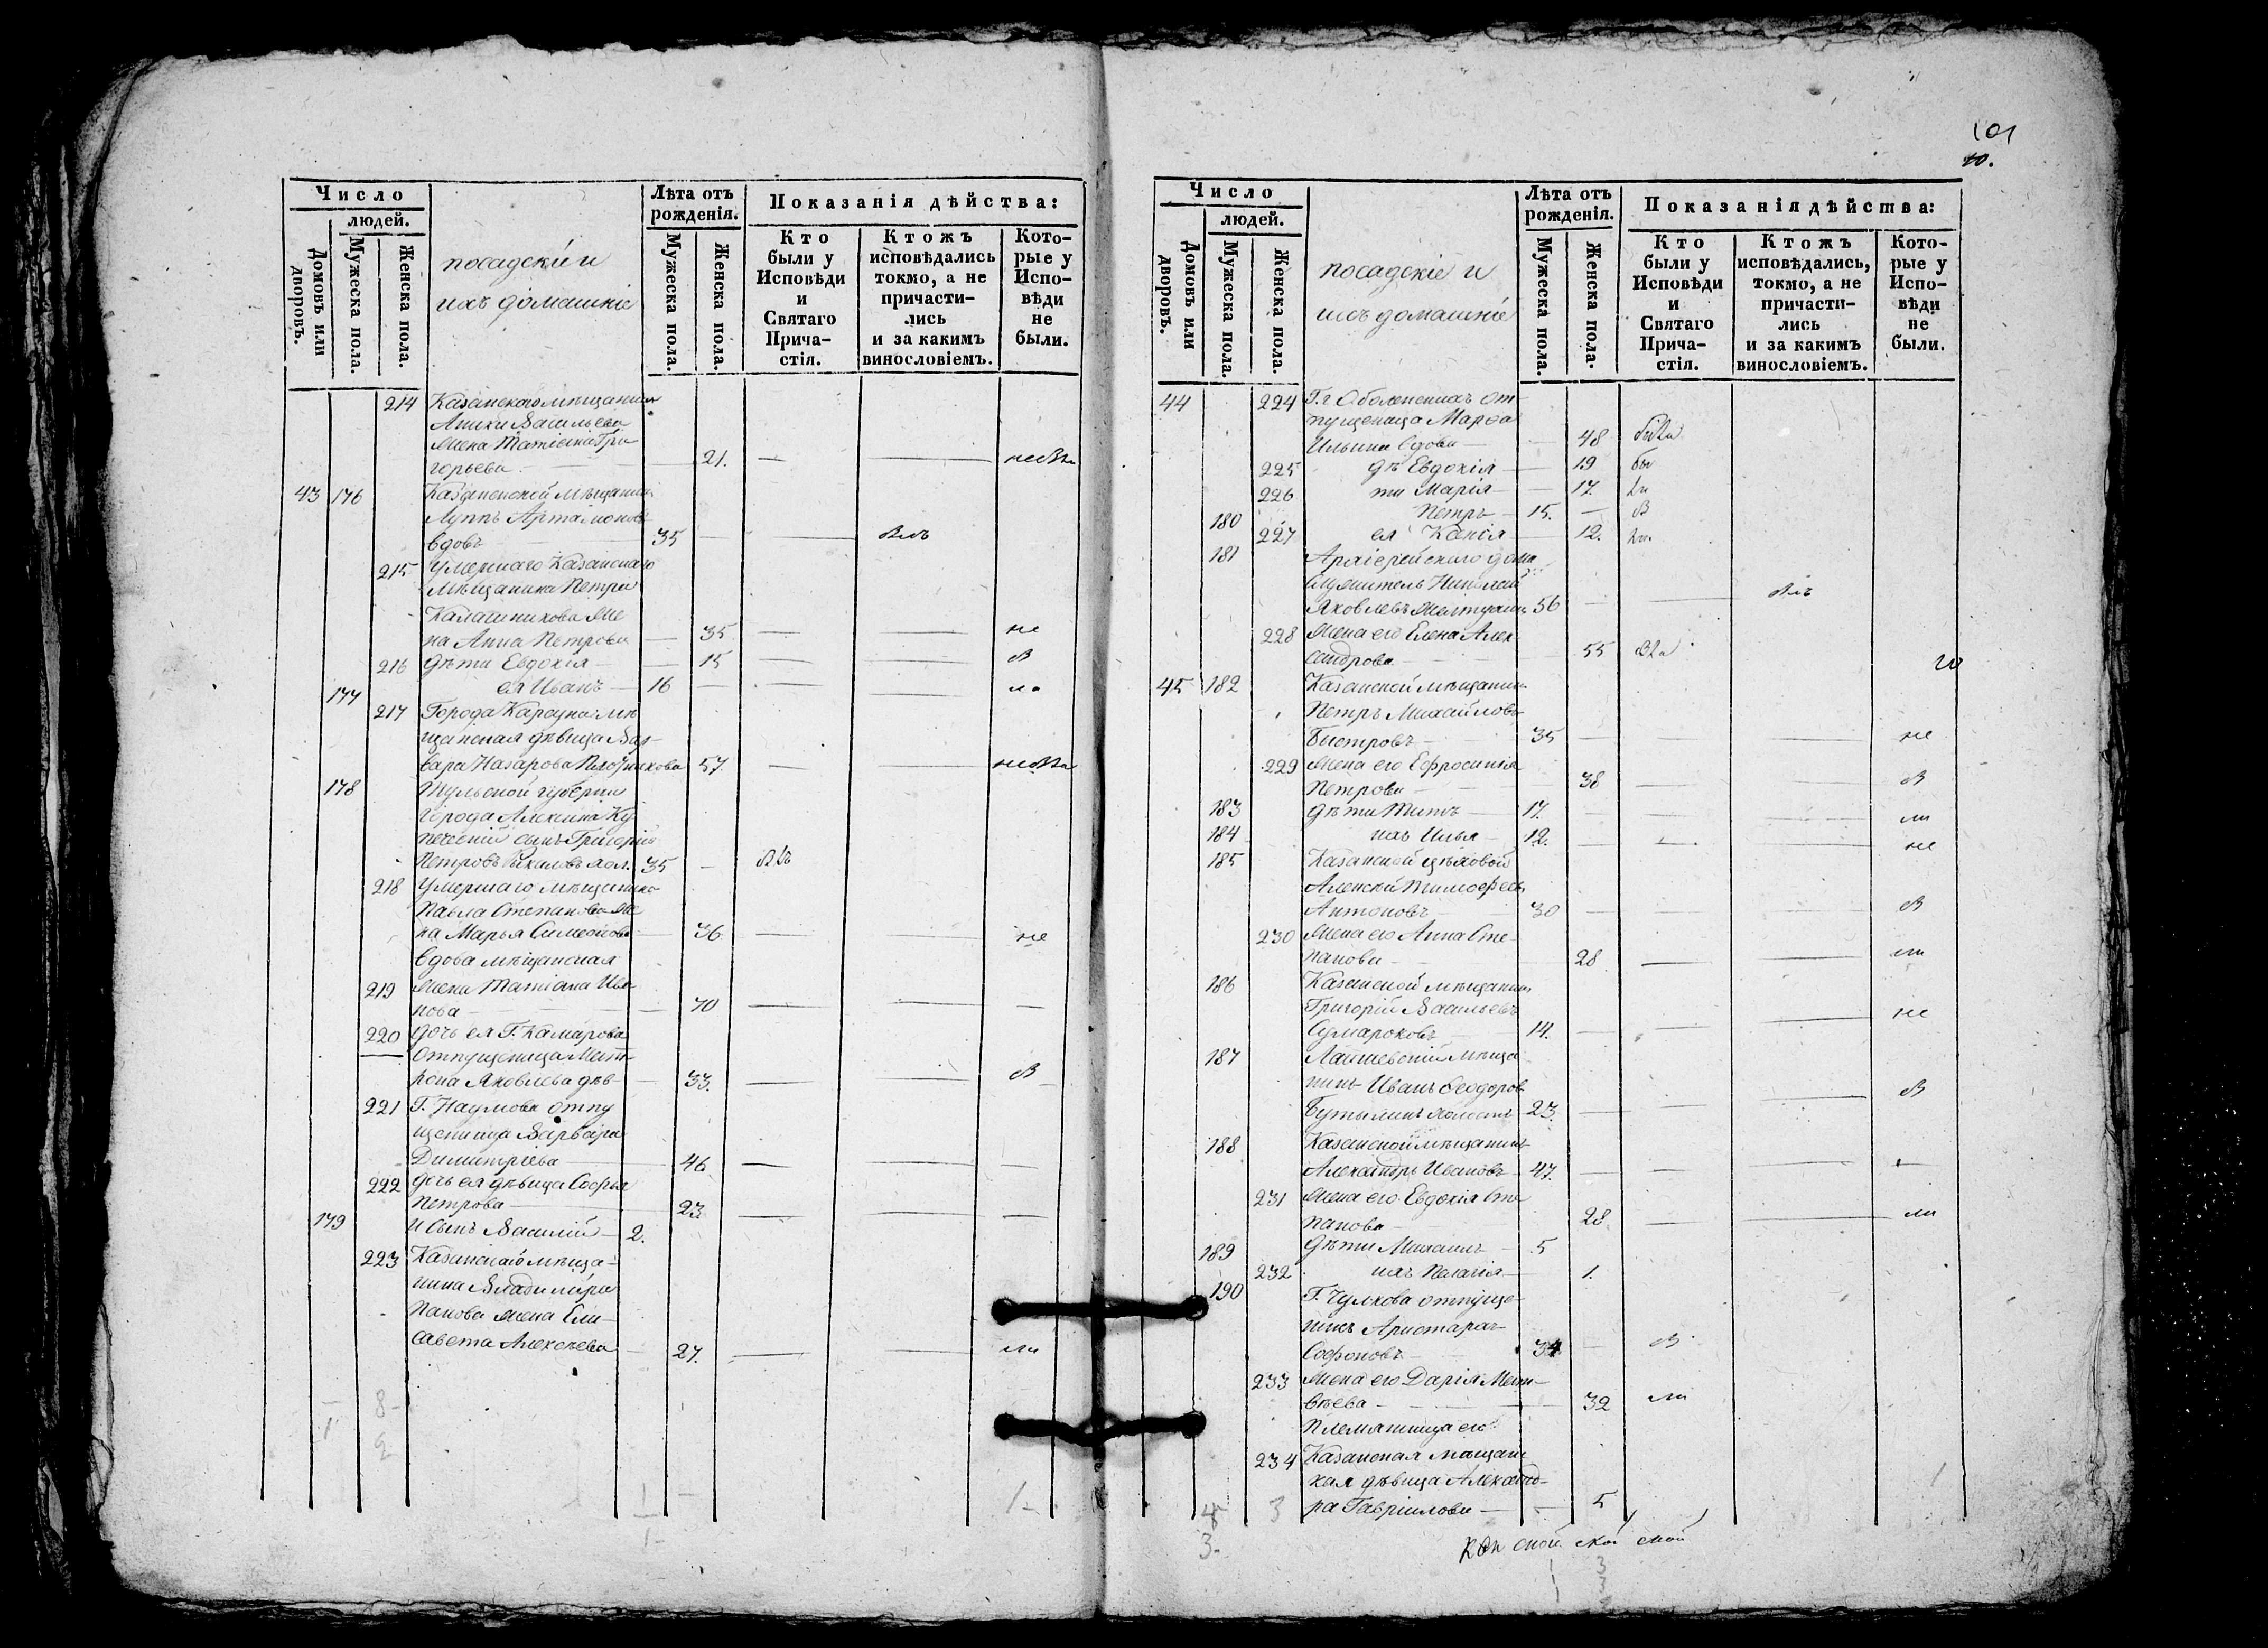 101
10.
Число
людей.
Домовъ или дворовъ.
Мужеска пола.
Женска пола.
посадскіи и
ихъ домашніе
Лѣта отъ
рожденія.
Мужеска пола.
Женска пола.
Показанія дѣйства:
Кто
были у
Исповѣди
и
Святаго
Прича-
стія.
Ктожъ
исповѣдались
токмо, а не
причасти-
лись
и за какимъ
винословіемъ.
Кото-
рые у
Испо-
вѣди
не
были.
214 Казанскаго мѣщанина
Васильева
жена Татіана Гри
горьева 21. — —
43 176 Казанской мѣщанинъ
Луппъ Артамоновъ
вдовъ 35 —
215 Умершаго Казанскаго
мѣщанина Петра
Калашникова же
на Анна Петрова — 35 — — не
216 дѣти Евдокія — 15 — — в
177 ея Иванъ — 16 — — —
217 Города мѣ
щанская дѣвица Вар-
вара Назарова 57. — —
178 Тульской губерніи
города Алексина Ку
печескій сынъ Григорій
Петровъ хол. 35 —
218 Умершаго мѣщанина
Павла Степанова же
на Марья Симеонова 36 — — не
вдова мѣщанская
219 жена Татіана Ива
нова — 70 — — —
220 дочь ея Г. Камарова
отпущеница Мат-
рона Яковлева дѣв — 33. — — в
221 Г. Наумова отпу
щеница Варвара
Димитріева 46 — — —
222 дочь ея дѣвица Софья
Петрова 23 — — —
179 и сынъ Василій — 2.
223 Казанскаго мѣща-
нина Владиміра
Панова жена Ели-
савета Алексѣева — 27. — — ли
Число
людей.
Домовъ или дворовъ.
Мужеска пола.
Женска пола.
посадскіе и
ихъ домашніе
Лѣта отъ
рожденія.
Мужеска пола.
Женска пола.
Показанія дѣйства:
Кто
были у
Исповѣди
и
Святаго
Прича-
стія.
Ктожъ
исповѣдались,
токмо, а не
причасти-
лись
и за какимъ
винословіемъ.
Кото-
рые у
Испо-
вѣди
не
были.
44 224 Г. г. Оболенскихъ от
пущеница Марѳа
Ильина вдова — — 48 была
225 дѣ Евдокія — — 19 бы
226 ти Марія — — 17. ли
180 Петръ — 15. — в
227 ея Ксенія — 12.
181 Архіерейскаго дома
служитель Николай
Яковлевъ 56 —
228 жена его Елена Алек
сандрова — 55
45 182 Казанской мѣщанинъ
Петръ Михайловъ
Быстровъ — 35 — — — не
229 жена его Ефросинія
Петрова — 38 — — в
183 дѣти Титъ — 17. — — — ли
184 ихъ Илья — 12. — — — не
185 Казанской цѣховой
Алексѣй Тимофеевъ
Антоновъ 30 — — — в
230 жена его Анна Сте
панова — 28 — — ли
186 Казанской мѣщанинъ
Григорій Васильевъ
Сумароковъ — 14. — — — не
187 Лаишевскій мѣща
нинъ Иванъ Феодоров
23. — — — в
188 Казанской мѣщанинъ
Александръ Ивановъ 47. — — — —
231 жена его Евдокія Сте
панова — 28 — — ли
189 дѣти Михаилъ — 5
232 ихъ Пелагія — 1.
190 Г. Чулкова отпуще-
никъ Аристархъ
Софоновъ — 34 — в
233 жена его Дарія Мат-
вѣева — 32 ли
племянница его
234 Казанская мѣщанс
кая дѣвица Александ-
ра Гавріилова — — 5